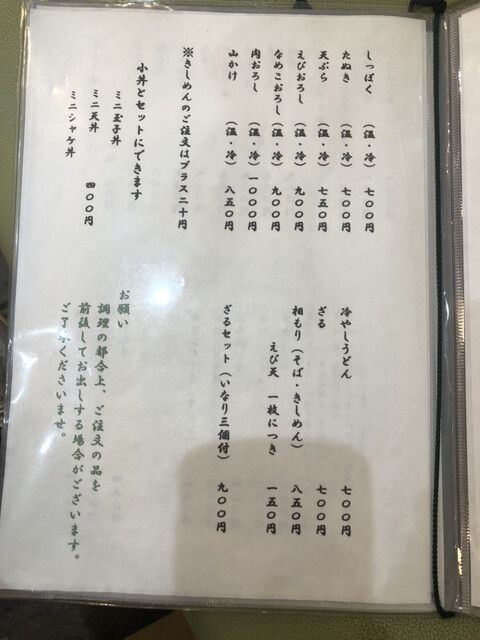 しっぽく （温・冷） 七〇〇円
たぬき （温・冷） 七〇〇円
天ぷら （温・冷） 七五〇円
えびおろし （温・冷） 九〇〇円
なめこおろし （温・冷） 九〇〇円
肉おろし （温・冷） 一〇〇〇円
山かけ （温・冷） 八五〇円
※きしめんのご注文はプラス二十円
小丼とセットにできます
ミニ玉子丼
ミニ天丼 四〇〇円
ミニシャケ丼
冷やしうどん 七〇〇円
ざる 七〇〇円
相もり（そば・きしめん） 八五〇円
えび天 一枚につき 一五〇円
ざるセット（いなり三個付） 九〇〇円
お願い
調理の都合上、ご注文の品を
前後してお出しする場合がございます。
ご了承くださいませ。